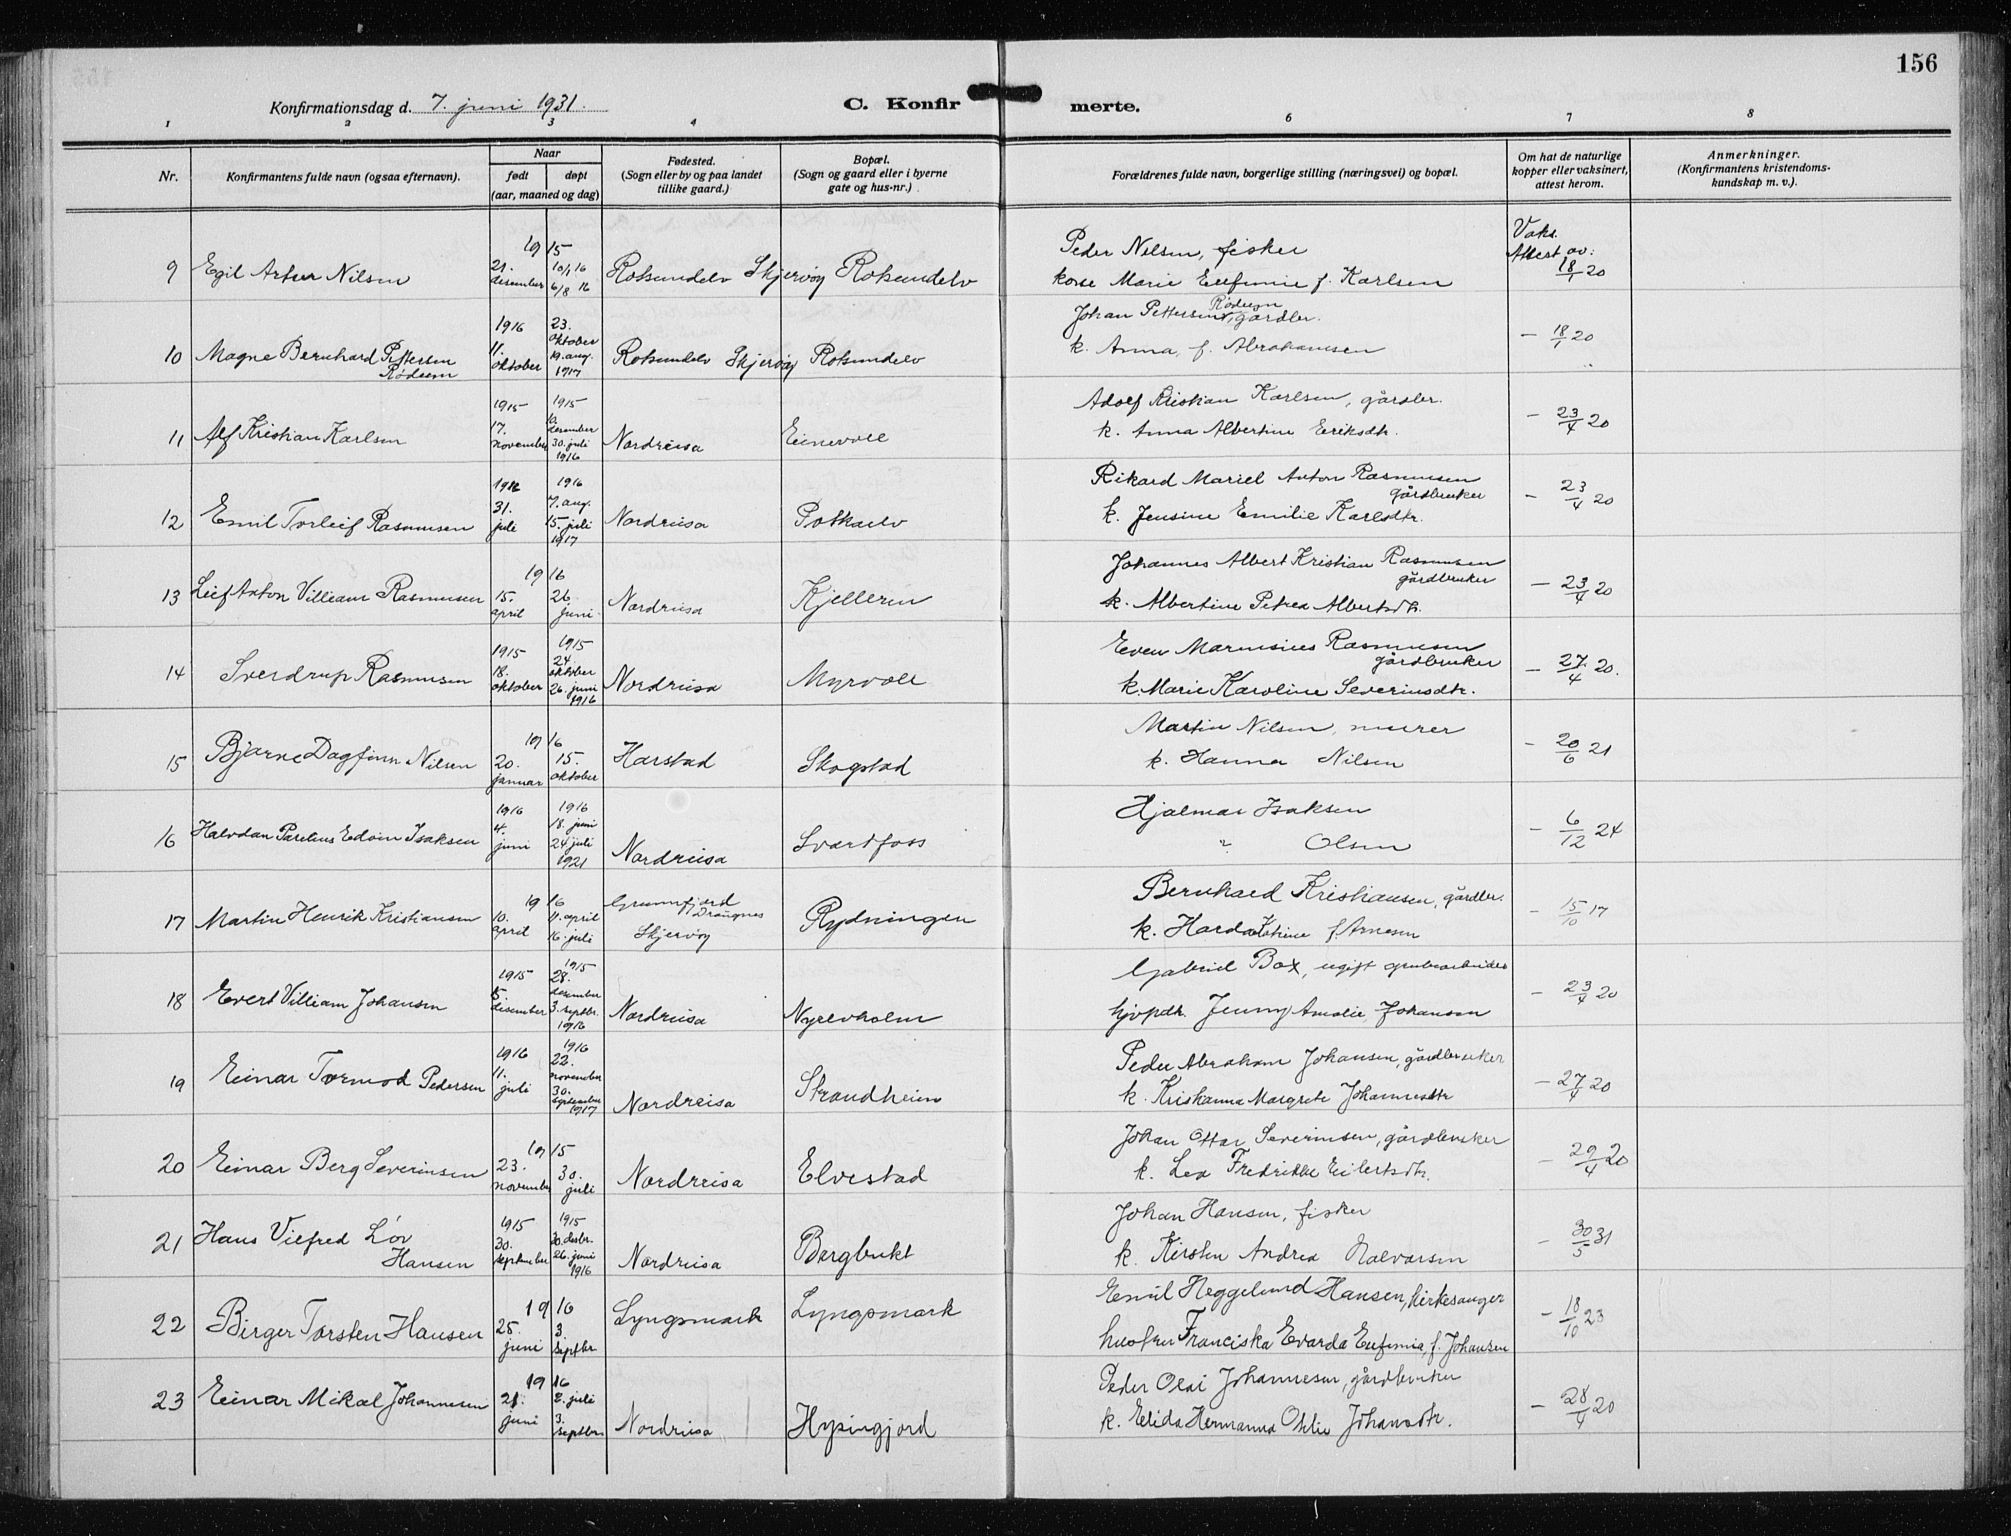 156
Konfirmationsdag d. 7. juni 1931.
C. Konfirmerte.
1 2 3 4 6 7 8
Nr.
Konfirmantens fulde navn (ogsaa efternavn).
Naar
født døpt
(aar, maaned og dag)
Fødested.
(Sogn eller by og paa landet
tillike gaard.)
Bopæl.
(Sogn og gaard eller i byerne
gate og hus-nr.)
Forældrenes fulde navn, borgerlige stilling (næringsvei) og bopæl.
Om hat de naturlige
kopper eller vaksinert,
attest herom.
Anmerkninger.
(Konfirmantens kristendoms-
kundskap m. v.).
9 Egil Artur Nilsen
19 15
21. desember
10/1 16
6/8 16
Rotsundelv Skjervøy
Rotsundelv
Peder Nilsen, fisker
kone Marie Eufemie f. Karlsen
Vaks.
Attest av:
18/1 20
10 Magne Bernhard Pettersen
Rødeem
1916
11. oktober
23. oktober
19. aug. 1917
Rotsundelv Skjervøy
Rotsundelv
Johan Pettersen Rødeem, gårdbr.
k. Anna, f. Abrahamsen
- 18/1 20
11 Alf Kristian Karlsen
1915
17. november
1915
10. desember
30. juli 1916
Nordreisa
Einevoll
Adolf Kristian Karlsen, gårdbr.
k. Anna Albertine Eeriksdtr.
- 23/4 20
12 Emil Torleif Rasmussen
1916
31. juli
1916
7. aug.
15. juli 1917
Nordreisa
Potkaelv
Rikard Mariel Anton Rasmussen
gårdbruker
k. Jensine Emilie Karlsdtr.
- 23/4 20
13 Leif Anton Villiam Rasmussen
19 16
15. april
26. juni
Nordreisa
Kjelleren
Johannes Albert Kristian Rasmussen
gårdbruker
k. Albertine Petrea Albertsdtr.
- 23/4 20
14 Sverdrup Rasmussen
1915
18. oktober
1915
24. oktober
26. juni 1916
Nordreisa
Myrvoll
Even Marensius Rasmussen
gårdbruker
k. Marie Karoline Severinsdtr.
- 27/4 20.
15 Bjarne Dagfinn Nilsen
19 16
20. januar
15. oktober
Harstad
Skogstad
Martin Nilsen, murer
k. Hanna Nilsen
- 20/6 21
16 Halvdan Parelius Edvin Isaksen
1916
4. juni
1916
18. juni
24 juli 1921
Nordreisa
Svartfoss
Hjalmar Isaksen
" Olsen
- 6/12 24
17 Martin Henrik Kristiansen
19 16
10. april
11. april
16. juli
Grunnfjord
Skjervøy
Rydningen
Bernhard Kristiansen, gårdbr.
k. Harda Katrine f. Arnesen
- 15/10 17
18 Evert Villiam Johansen
1915
5. desember
1915
28. desember
3. septbr. 1916
Nordreisa
Nyrevholm
Gabriel Box, ugift grubearbeider
hjvpdtr. Jenny Amalie, Johansen
- 23/4 20
19 Einar Tormod Pedersen
1916
11. juli
1916
22. november
30. september 1917
Nordreisa
Strandheim
Peder Abraham Johansen, gårdbruker
k. Kristianna Margrete Johannesdtr
- 27/4 20
20 Einar Berg Severinsen
19 15
23. november
30. juli
Nordreisa
Elvestad
Johan Ottar Severinsen, gårdbruker
k. Lea Fredrikke Eilertsdtr.
- 29/4 20
21 Hans Vilfred Löv
Hansen
1915
30. september
1915
30. desbr.
26. juni 1916
Nordreisa
Bergbukt
Johan Hansen, fisker
k. Kirsten Andrea Halvorsen
- 30/5 31
22 Birger Torsten Hansen
19 16
25. juni
3 septbr
Lyngsmark
Lyngsmark
Emil Heggelund Hansen, kirkesanger
hustru Franciska Evarda Eufemia, f. Johansen
- 18/10 23
23 Einar Mikal Johannesen
19 16
21. juni
2. juli
3. septbr.
Nordreisa
Hysingjord
Peder Olai Johannesen, gårdbruker
k. Elida Hermanna Otilie Johansdtr.
- 28/4 20